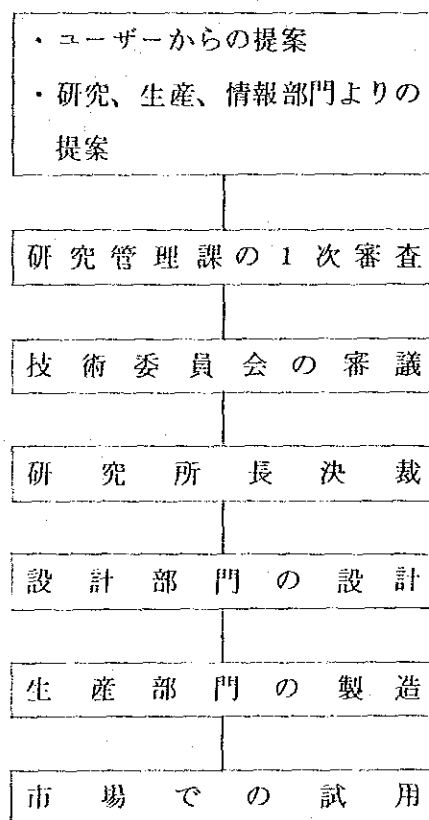 ・ユーザーからの提案
・研究、生産、情報部門よりの
提案
研究管理課の1次審査
技術委員会の審議
研究所長決裁
設計部門の設計
生産部門の製造
市場での試用